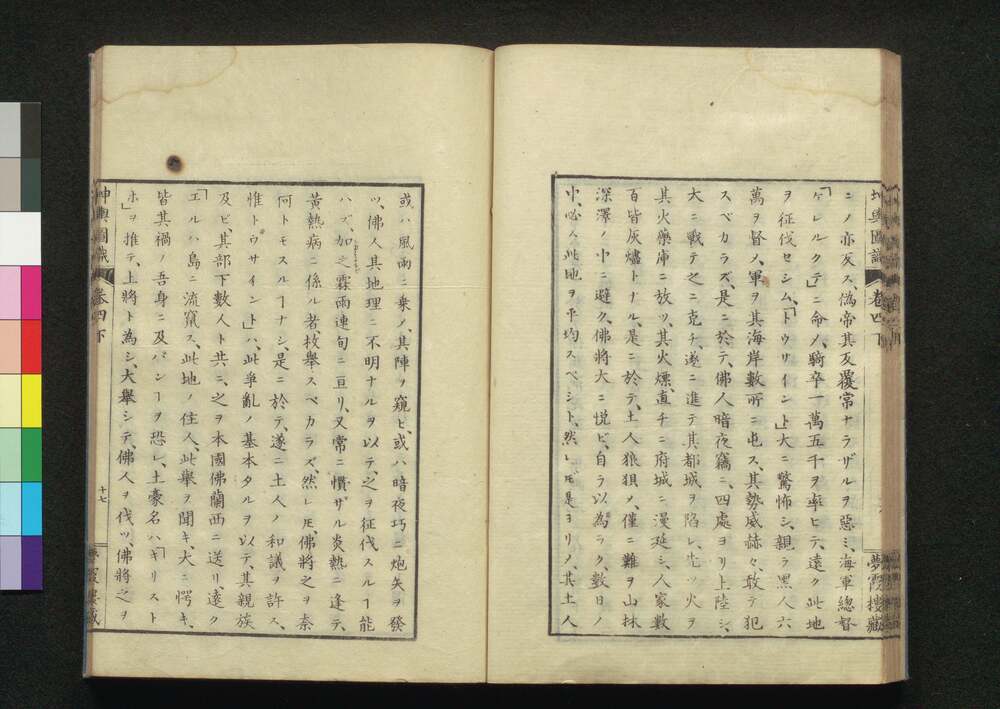 坤輿圖識
卷四下
夢霞樓藏
ニノ亦反ス、偽帝其反覆常ナラザルヲ惡ミ、海軍總督
「ゲレルクテ」ニ命ノ、騎卒一萬五千ヲ率ヒテ、遠ク此地
ヲ征伐セシム、「トウサイント」大ニ驚怖シ、親ラ黑人六
萬ヲ督ノ、軍ヲ其海岸數所ニ屯ス、其勢威赫々、敢テ犯
スベカラズ、是ニ於テ、佛人暗夜竊ニ、四處ヨリ上陸シ、
大ニ戰テ之ニ克チ、遂ニ進テ其都城ヲ陷レ、先ツ火ヲ
其火藥庫ニ放ツ、其火燻、直チニ府城ニ漫延シ、人家數
百皆灰燼トナル、是ニ於テ、土人狼狽ノ、僅ニ難ヲ山林
深澤ノ中ニ避ク、佛將大ニ悦ビ、自ラ以為ラク、數日ノ
中、必ス此地ヲ平均スベシト、然レ𪜈是ヨリノ、其土人
或ハ風雨ニ乗ノ、其陣ヲ窺ヒ、或ハ暗夜巧ニ炮矢ヲ發
ツ、佛人其地理ニ不明ナルヲ以テ、之ヲ征伐スルヿ能
ハズ、加之霖雨連旬ニ亘リ、又常ニ慣ザル炎熱ニ逢テ、
黃熱病ニ係ル者、枚舉スベカラズ、然レ𪜈佛將之ヲ奈
何トモスルヿナシ、是ニ於テ、遂ニ土人ノ和議ヲ許ス、
惟「トウサイント」ハ、此爭亂ノ基本タルヲ以テ、其親族
及ビ其部下數人ト共ニ、之ヲ本國佛蘭西ニ送リ遠ク
「エルハ」島ニ流竄ス、此地ノ住人、此舉ヲ聞キ、大ニ愕キ、
皆其禍ノ吾身ニ及バンヿヲ恐レ、土豪名ハ「キリスト
ホ」ヲ推テ、上將ト為シ、大舉シテ佛人ヲ伐ツ、佛將之ヲ
坤輿圖識
卷四下
十七
夢霞樓藏